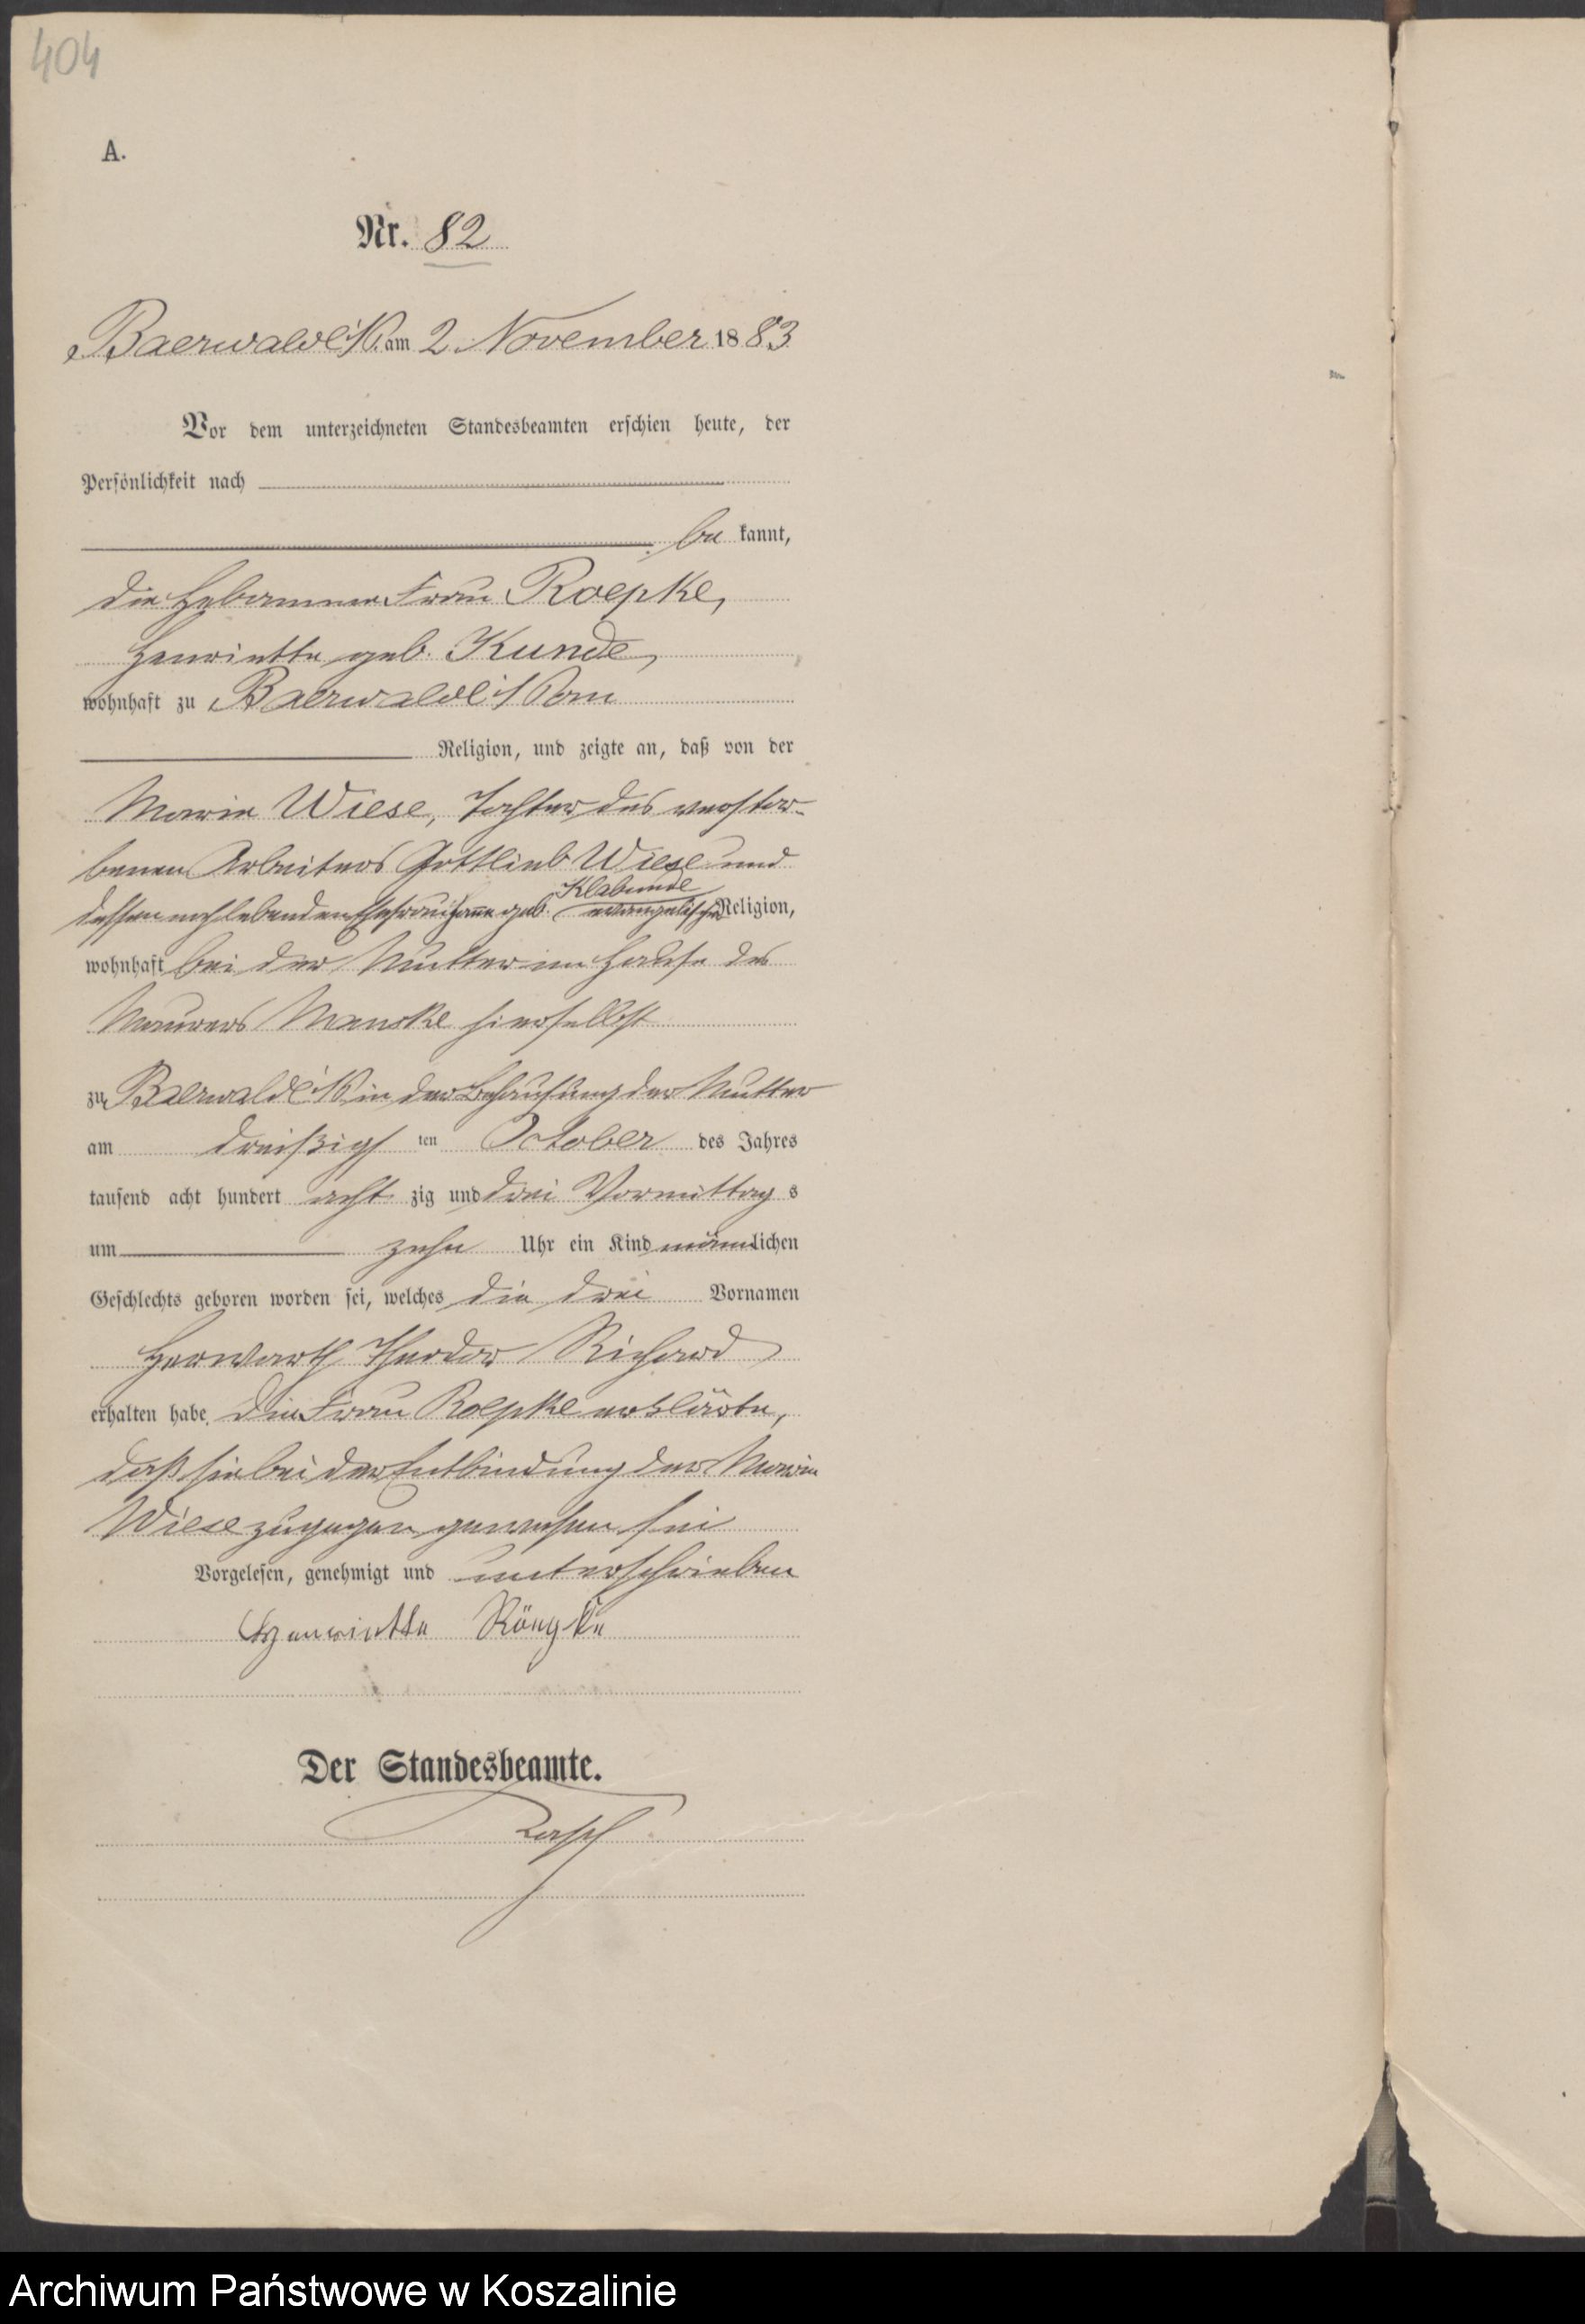 404
A.
Nr. 82
Baerwalde i/P. am 2 November 1883
Vor dem unterzeichneten Standesbeamten erschien heute, der
Persönlichkeit nach
be kannt,
die Hebamme Frau Roepke,
Henriette geb. Kunde,
wohnhaft zu Baerwalde i/Pom
Religion, und zeigte an, daß von der
Marie Wiese, Tochter des verstor-
benen Arbeiters Gottlieb Wiese und
Klabunde
dessen noch lebenden Ehefrau geb. evangelischer Religion,
wohnhaft bei der Mutter im Hause des
Maurers Manske hierselbst
zu Baerwalde i/P in der Behausung der Mutter
am dreißigsten October des Jahres
tausend acht hundert acht zig und drei Vormittag s
um zehn Uhr ein Kind männlichen
Geschlechts geboren worden sei, welches die drei Vornamen
Herwarth Theodor Richard
erhalten habe. Die Frau Roepke erklärte,
daß sie bei der Entbindung der Marie
Wiese zugegen gewesen sei
Vorgelesen, genehmigt und unterschrieben
Henriette Röepke
Der Standesbeamte.